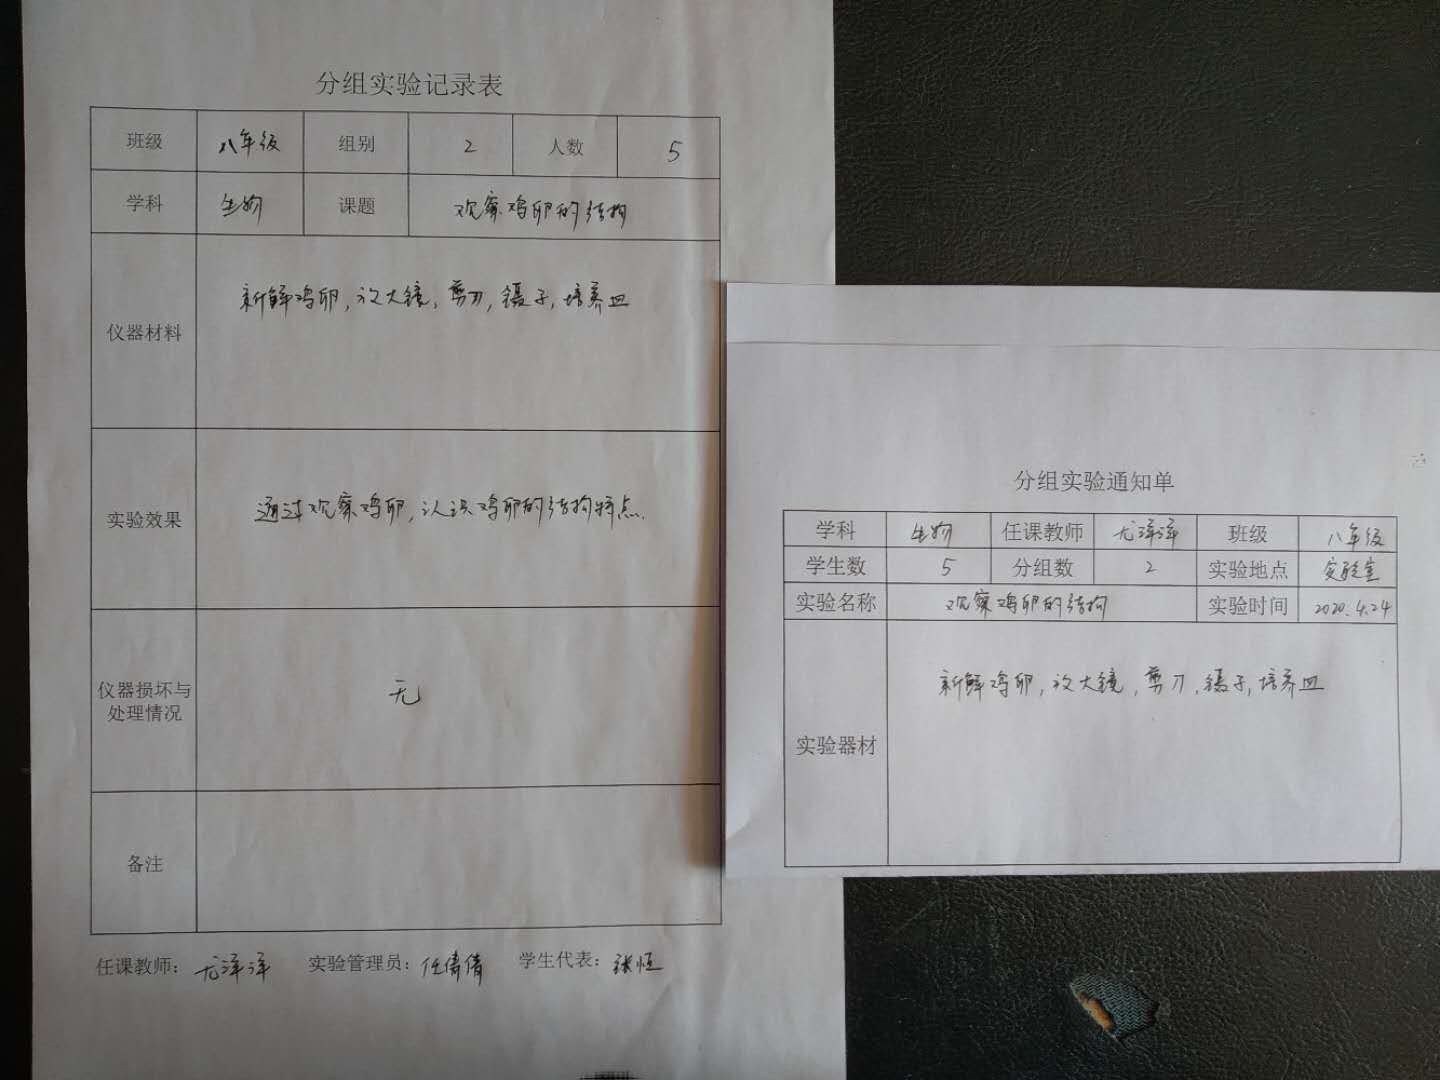 分组实验记录表
班级 八年级 组别 2 人数 5
学科 生物 课题 观察鸡卵的结构
仪器材料 新鲜鸡卵,放大镜,剪刀,镊子,培养皿
实验效果 通过观察鸡卵,认识鸡卵的结构特点.
仪器损坏与
处理情况 无
备注
任课教师: 尤洋洋 实验管理员: 任倩倩 学生代表: 张恒
分组实验通知单
学科 生物 任课教师 尤洋洋 班级 八年级
学生数 5 分组数 2 实验地点 实验室
实验名称 观察鸡卵的结构 实验时间 2020.4.24
实验器材 新鲜鸡卵,放大镜,剪刀,镊子,培养皿